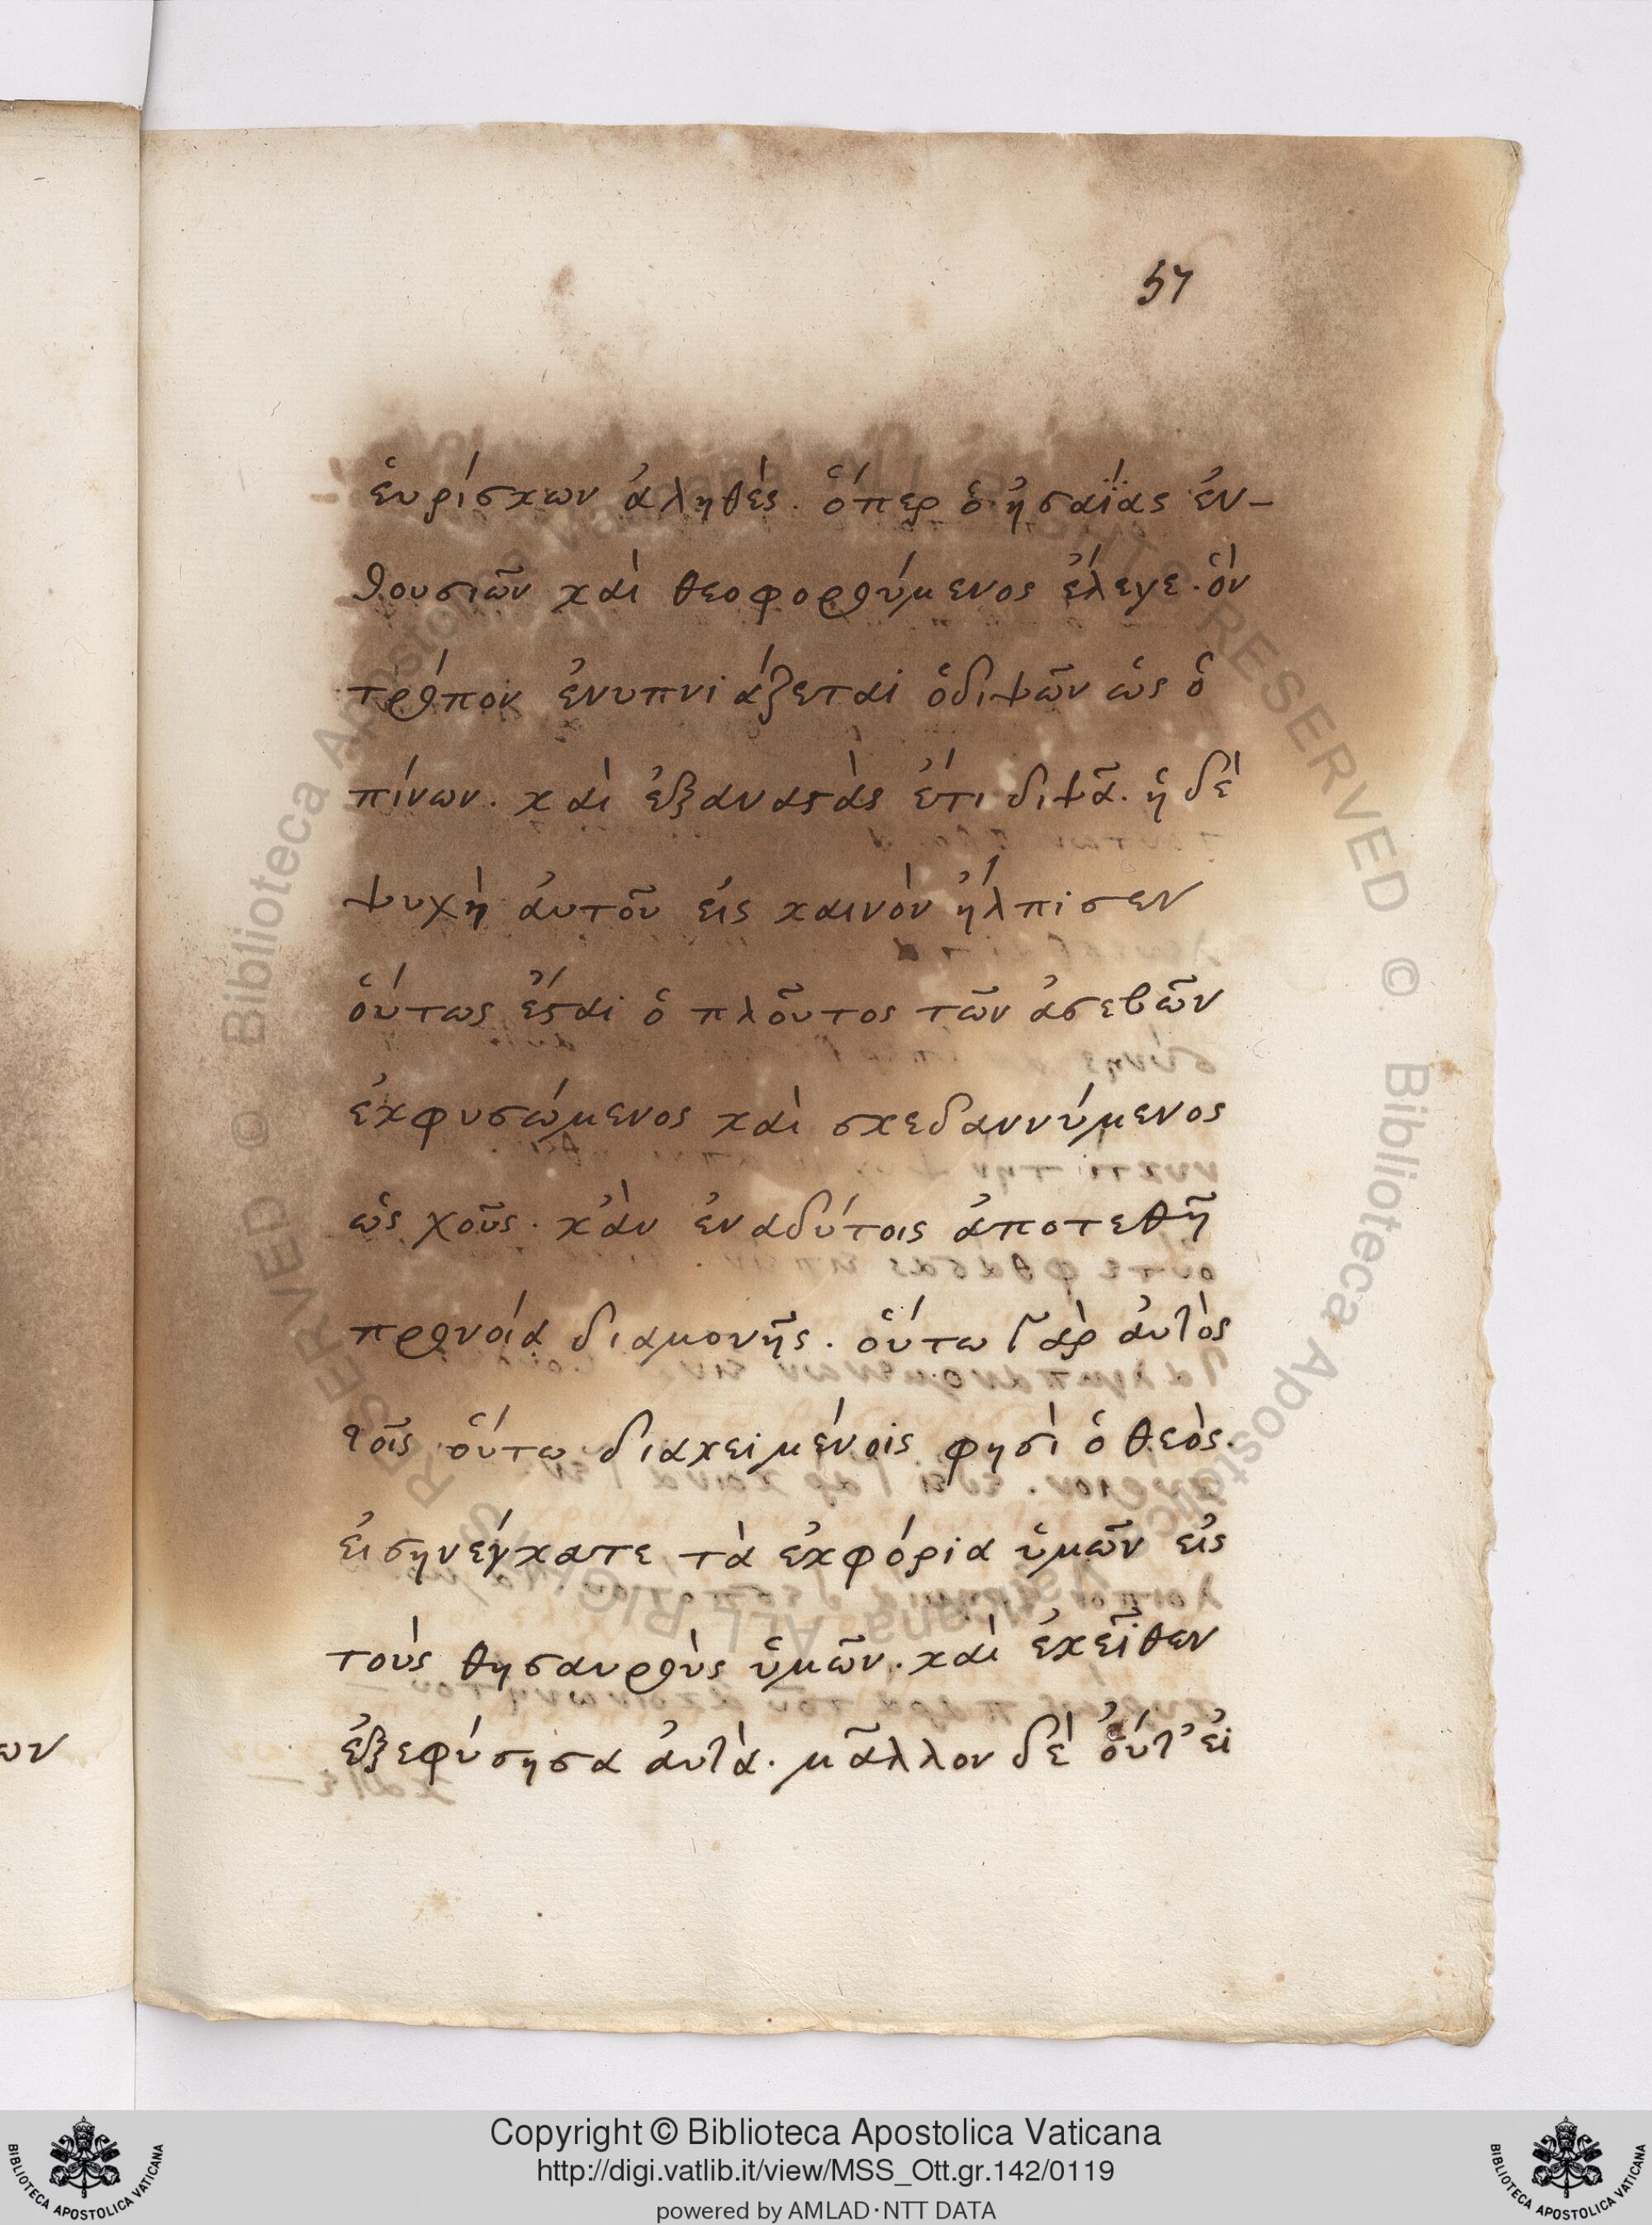 57
εὑρίσκων ἀληθές. ὅπερ ὁ ἡσαΐας ἐν-
θουσιῶν καὶ θεοφορούμενος ἔλεγε. ὃν
τρόπον ἐνυπνιάζεται ὁ διψῶν ὡς ὁ
πίνων. καὶ ἐξαναστὰς ἔτι διψᾶ. ἡ δὲ
ψυχὴ ἀυτοῦ εἰς καινὸν ἤλπισεν
ὅυτως ἔσται ὁ πλοῦτος τῶν ἀσεβῶν
ἐκφυσώμενος καὶ σκεδαννύμενος
ὡς χοῦς. κἀν ἐν αδύτοις ἀποτεθῆ
προνοία διαμονῆς. ὅυτω γὰρ ἀυτὸς
τοῖς ὅυτω διακειμένοις φησὶ ὁ θεὸς.
ἐισηνέγκατε τὰ ἐκφόρια ὑμῶν εἰς
τοὺς θησαυροὺς ὑμῶν. καὶ ἐκεῖθεν
ἐξεφύσησα ἀυτὰ. μᾶλλον δὲ ὄυτ' ἐι
ων
Copyright © Biblioteca Apostolica Vaticana
http://digi.vatlib.it/view/MSS_Ott.gr.142/0119
powered by AMLAD·NTT DATA
BIBLIOTECA APOSTOLICA VATICANA
BIBLIOTECA APOSTOLICA VATICANA
© Biblioteca Apostolica Vaticana ALL RIGHTS RESERVED © Biblioteca Apostolica Vaticana ALL RIGHTS RESERVED